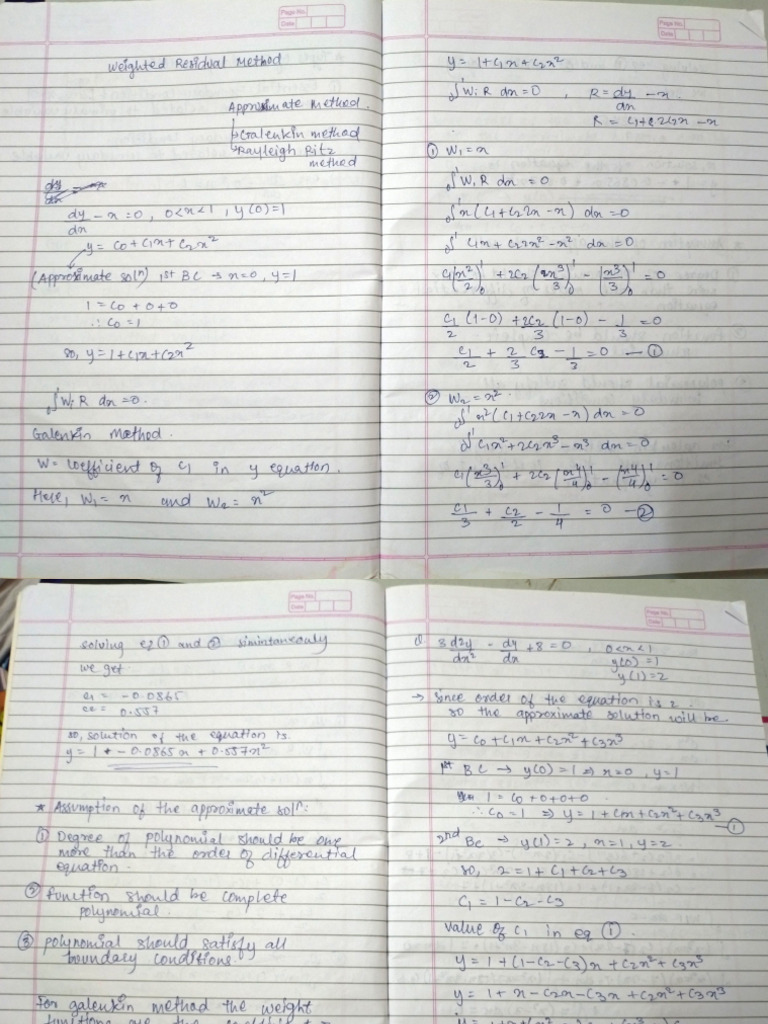 Page No.
Date
Weighted Residual Method
Approximate Method.
→ Galenkin method
→ Rayleigh Ritz
method
dy/dx - x = 0, 0<x<1, y(0)=1
y = C0 + C1x + C2x²
(Approximate solⁿ) 1st BC → x=0, y=1
1 = C0 + 0 + 0
∴ C0 = 1
so, y = 1 + C1x + C2x²
₀∫¹ Wi R dx = 0.
Galenkin Method.
W = coefficient of C1 in y equation.
Here, W1 = x and W2 = x²
Page No.
Date
y = 1 + C1x + C2x²
₀∫¹ Wi R dx = 0, R = dy/dx - x.
R = C1 + C2 2x - x
① W1 = x
₀∫¹ W1 R dx = 0
₀∫¹ x (C1 + C2 2x - x) dx = 0
₀∫¹ C1x + C2 2x² - x² dx = 0
C1 (x²/2)₀¹ + 2C2 (x³/3)₀¹ - (x³/3)₀¹ = 0
C1/2 (1-0) + 2C2/3 (1-0) - 1/3 = 0
C1/2 + 2/3 C2 - 1/3 = 0 — ①
② W2 = x².
₀∫¹ x² (C1 + C2 2x - x) dx = 0
₀∫¹ C1x² + 2C2x³ - x³ dx = 0
C1 (x³/3)₀¹ + 2C2 (x⁴/4)₀¹ - (x⁴/4)₀¹ = 0
C1/3 + C2/2 - 1/4 = 0 — ②
Page No.
Date
solving eq ① and ② simintaneously
we get.
C1 = -0.0865
C2 = 0.557
so, solution of the equation is.
y = 1 + -0.0865x + 0.557x²
* Assumption of the approximate solⁿ:
① Degree of polynomial should be one
more than the order of differential
equation.
② function should be complete
polynomial.
③ polynomial should satisfy all
boundary conditions.
For galenkin method the weight
functions are the
Page No.
Date
Q) 3 d²y/dx² - dy/dx + 8 = 0, 0<x<1
y(0) = 1
y(1) = 2
→ Since order of the equation is 2.
so the approximate solution will be.
y = C0 + C1x + C2x² + C3x³
1st BC → y(0) = 1 ⇒ x=0, y=1
1 = C0 + 0 + 0 + 0.
∴ C0 = 1 ⇒ y = 1 + C1x + C2x² + C3x³ — ①
2nd BC → y(1) = 2, x=1, y=2
so, 2 = 1 + C1 + C2 + C3
C1 = 1 - C2 - C3
value of C1 in eq ①.
y = 1 + (1 - C2 - C3)x + C2x² + C3x³
y = 1 + x - C2x - C3x + C2x² + C3x³